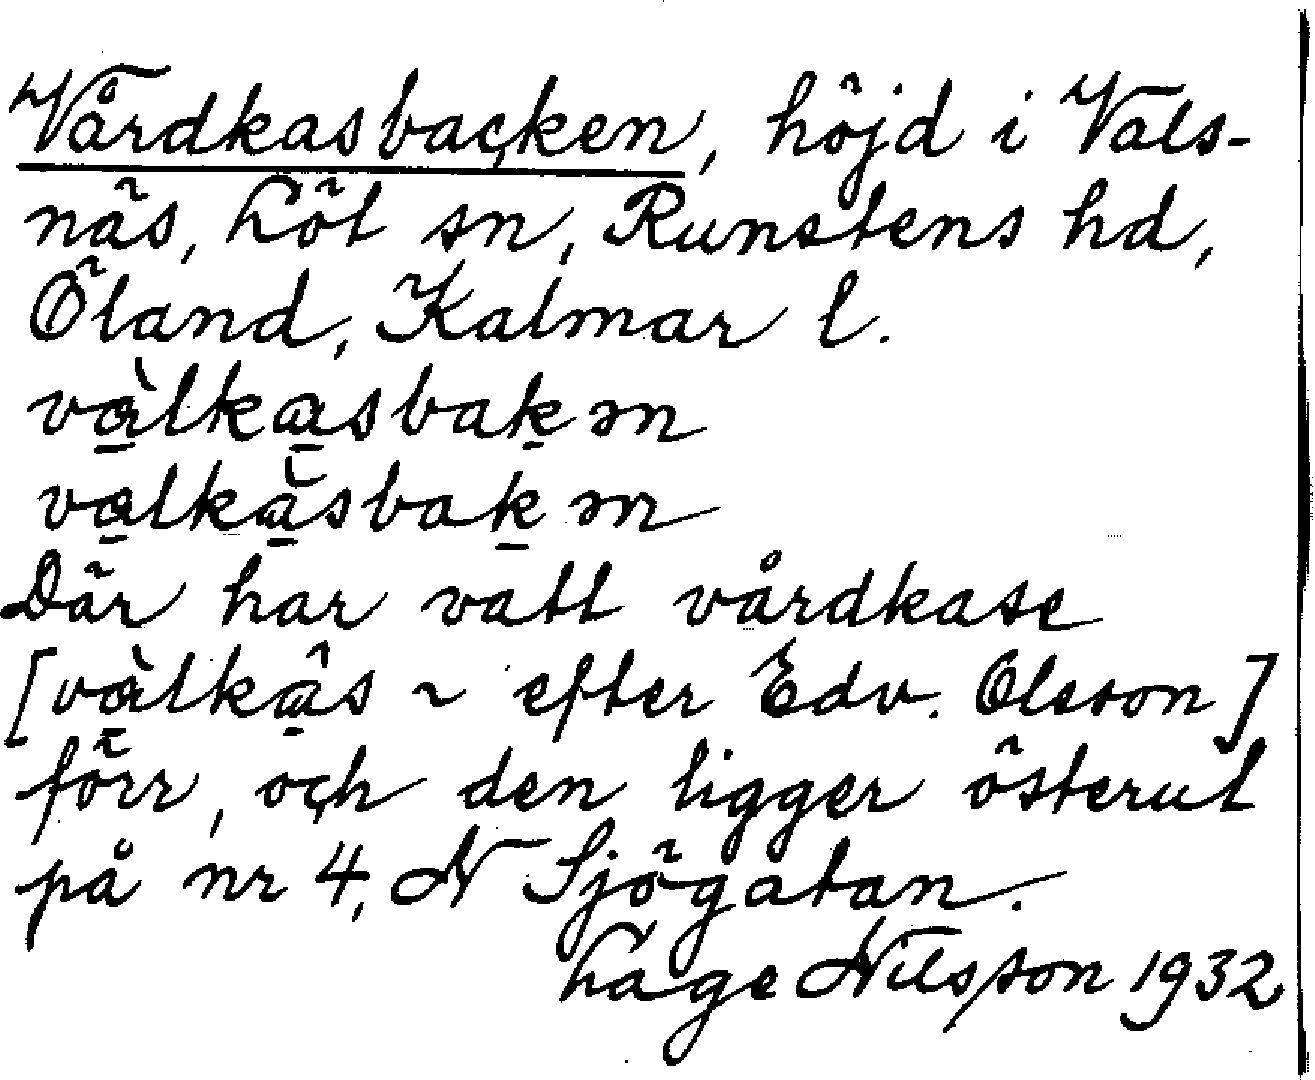 Vårdkasbacken, höjd i Vals-
näs, Löt sn, Runstens hd,
Öland, Kalmar l.
vàlkasbakm
valkàsbakm
Där har vatt vårdkase
[vàlkâs ~ efter Edv. Olsson]
förr, och den ligger österut
på nr 4, N Sjögatan.
Lage Nilsson 1932